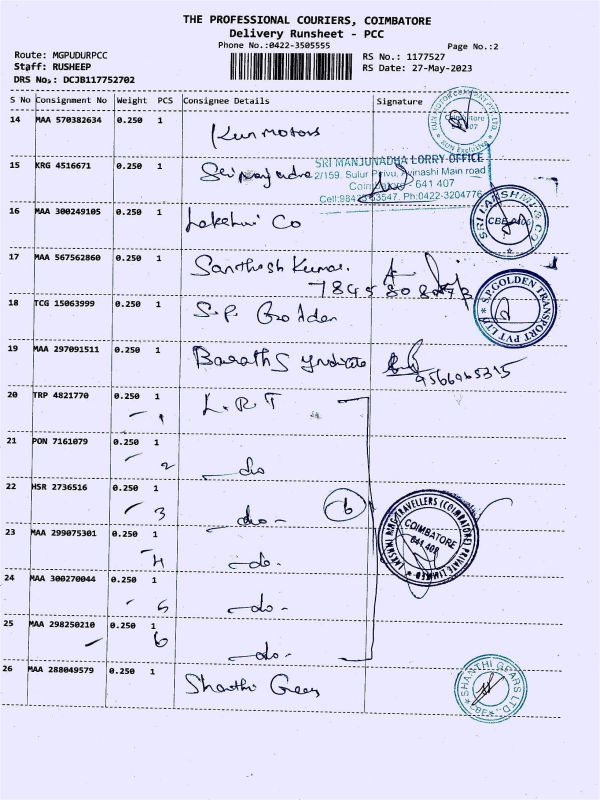 THE PROFESSIONAL COURIERS, COIMBATORE
Delivery Runsheet - PCC
Phone No.:0422-3505555
Page No.:2
Route: MGPUDURPCC
Staff: RUSHEEP
DRS No.: DCJB117752702
RS No.: 1177527
RS Date: 27-May-2023
S No Consignment No Weight PCS Consignee Details Signature
14 MAA 570382634 0.250 1 Kun motors
KUN MOTOR COMPANY PVT. LTD.
15 KRG 4516671 0.250 1
SRI MANJUNADHA LORRY OFFICE
2/159. Sulur Privu, Avinashi Main road
Coimbatore - 641 407
Ph:0422-3204776
16 MAA 300249105 0.250 1 Lakshmi Co
SRI LAKSHMI & CO
17 MAA 567562860 0.250 1 Santhosh Kumar.
18 TCG 15063999 0.250 1 S.P. Golden
S.P.GOLDEN TRANSPORT PVT LTD
19 MAA 297091511 0.250 1 Barath Syndicate
9566965315
20 TRP 4821770 0.250 1 L.R.T
1
21 PON 7161079 0.250 1
2 - do
22 HSR 2736516 0.250 1
3 - do -
6
23 MAA 299075301 0.250 1
4 - do -
LAKSHMI RING TRAVELLERS (COIMBATORE) PRIVATE LIMITED
COIMBATORE
641 402
24 MAA 300270044 0.250 1
5 - do -
25 MAA 298250210 0.250 1
6 - do -
26 MAA 288049579 0.250 1 Shanthi Gears
SHANTHI GEARS LTD
CBE